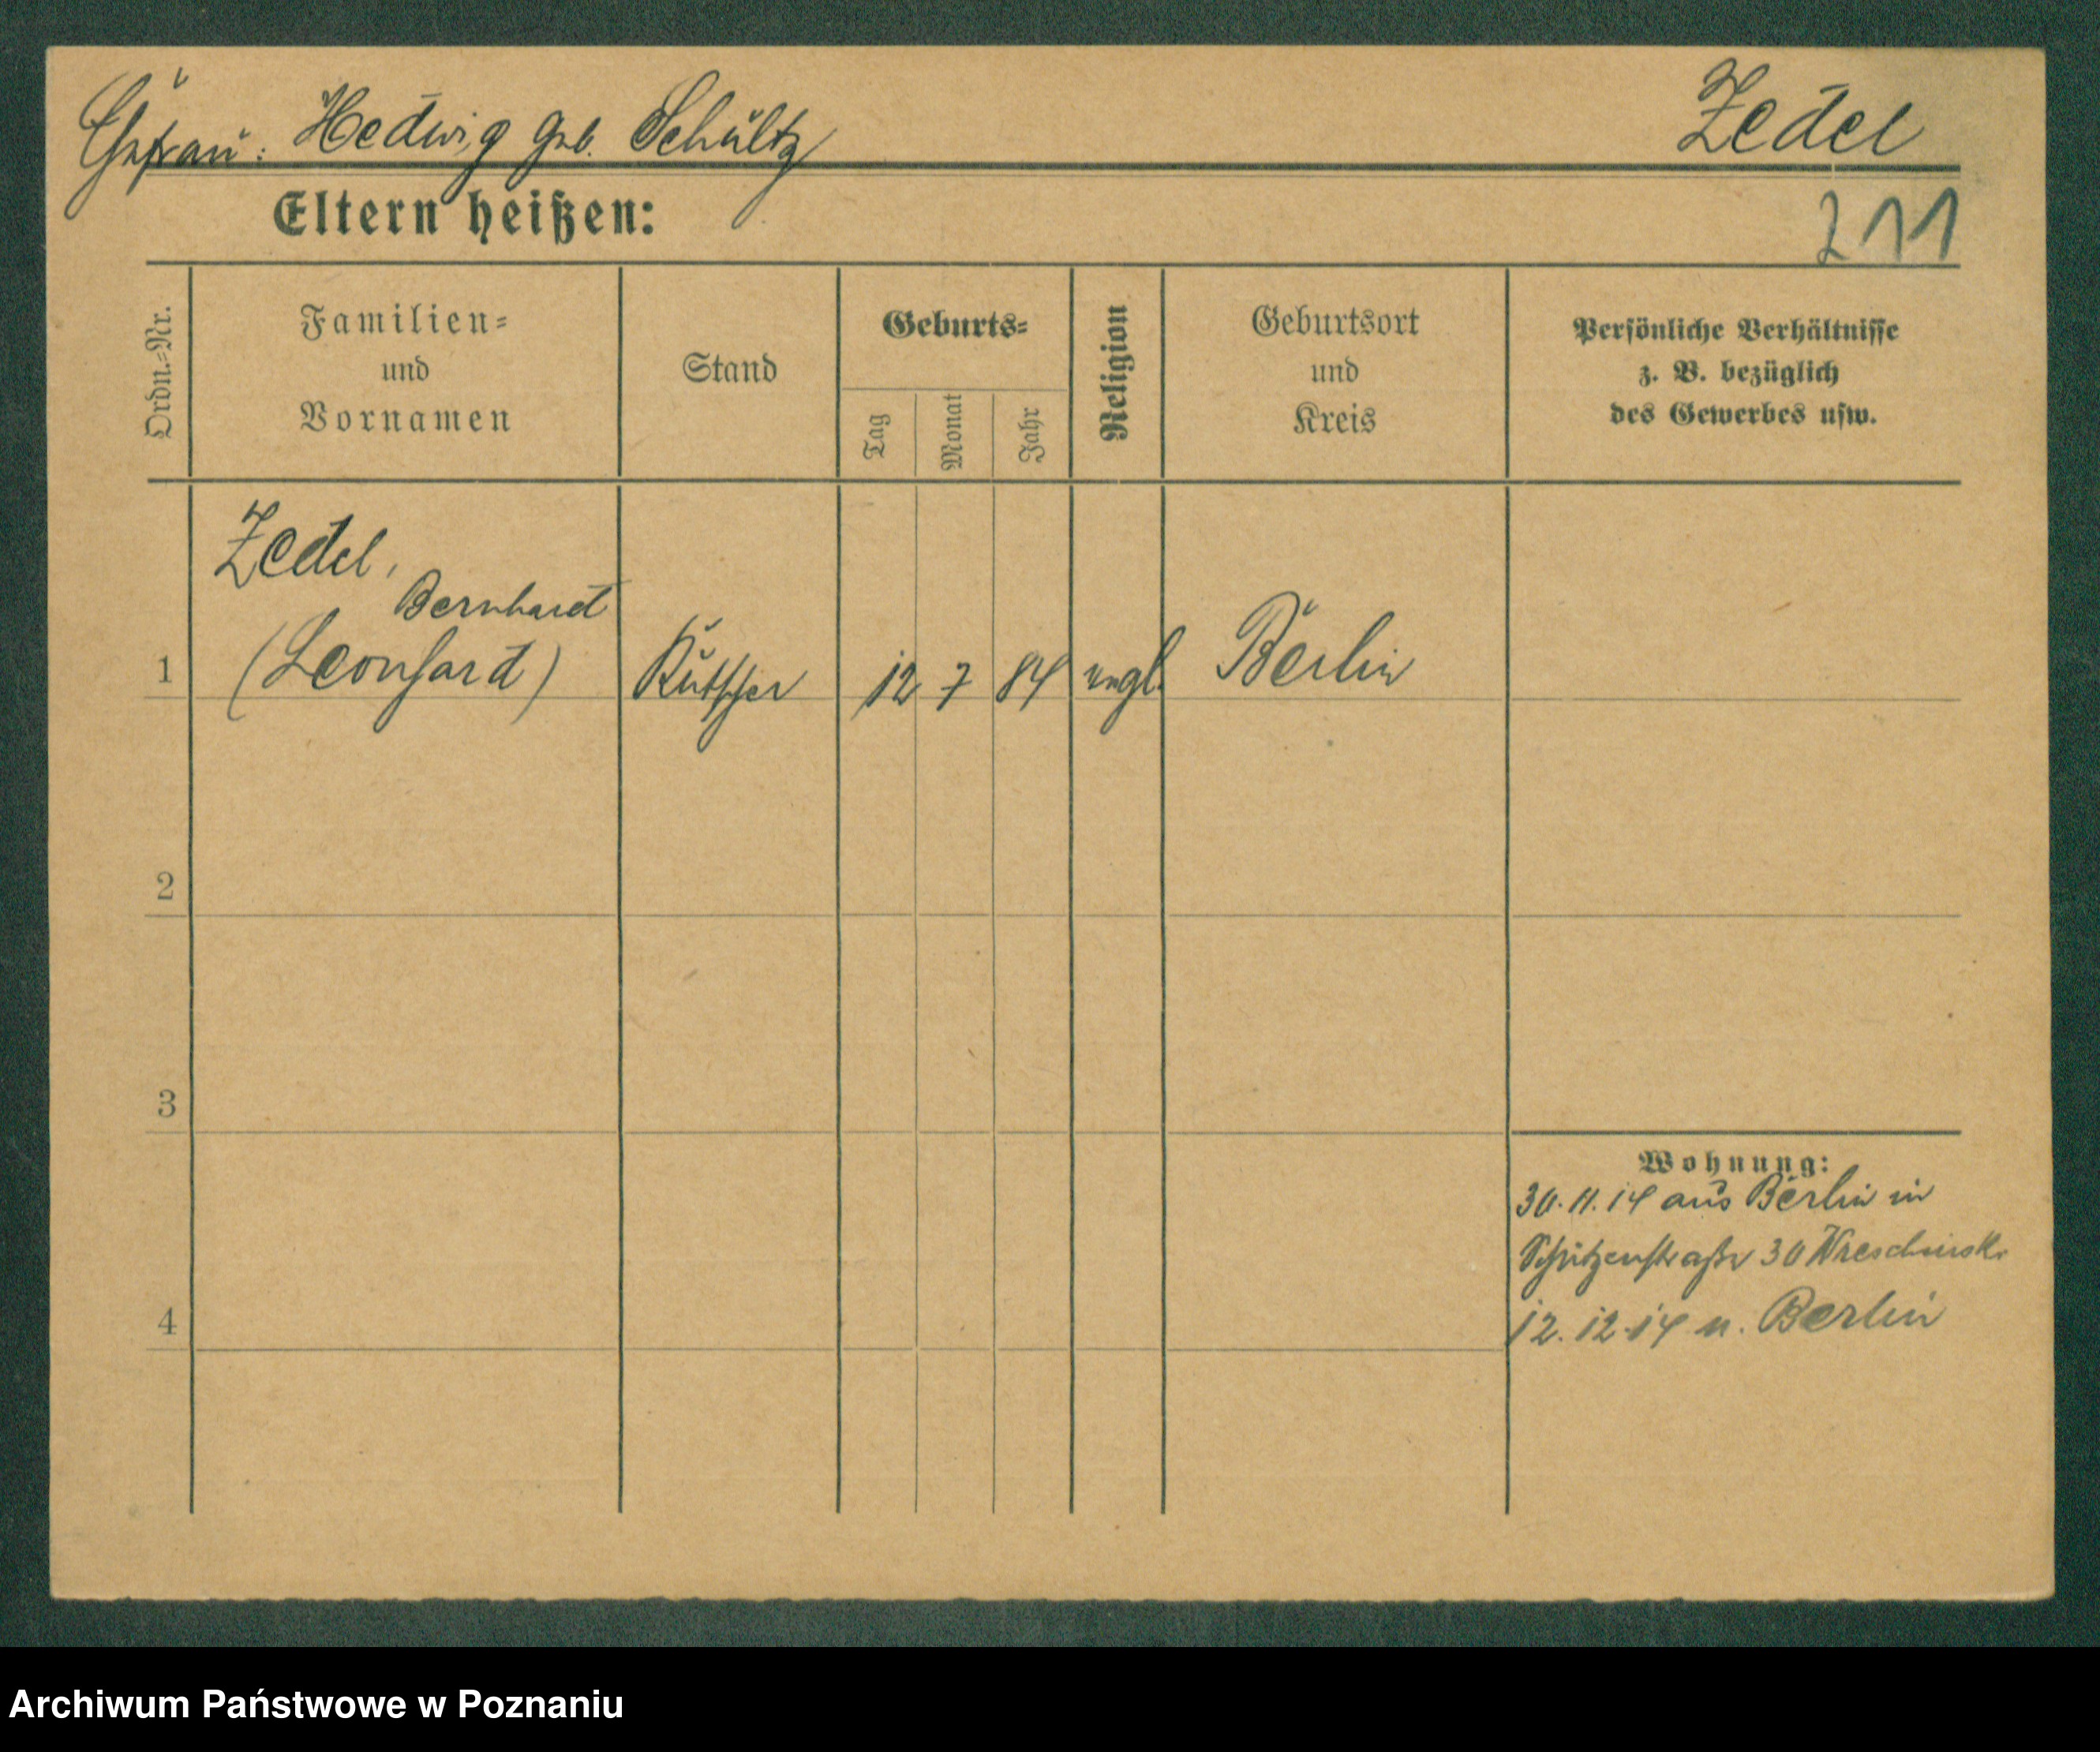 Ehefrau: Hedwig geb. Schultz
Zedel
Eltern heißen:
211
Ordn.-Nr.
Familien-
und
Vornamen
Stand
Geburts-
Tag
Monat
Jahr
Religion
Geburtsort
und
Kreis
Persönliche Verhältnisse
z. B. bezüglich
des Gewerbes usw.
Zedel,
Bernhard
1 (Leonhard) Kutscher 12 7 84 evgl. Berlin
2
3
Wohnung:
30.11.14 aus Berlin in
Schützenstraße 30
4
12.12.14 n. Berlin
Archiwum Państwowe w Poznaniu